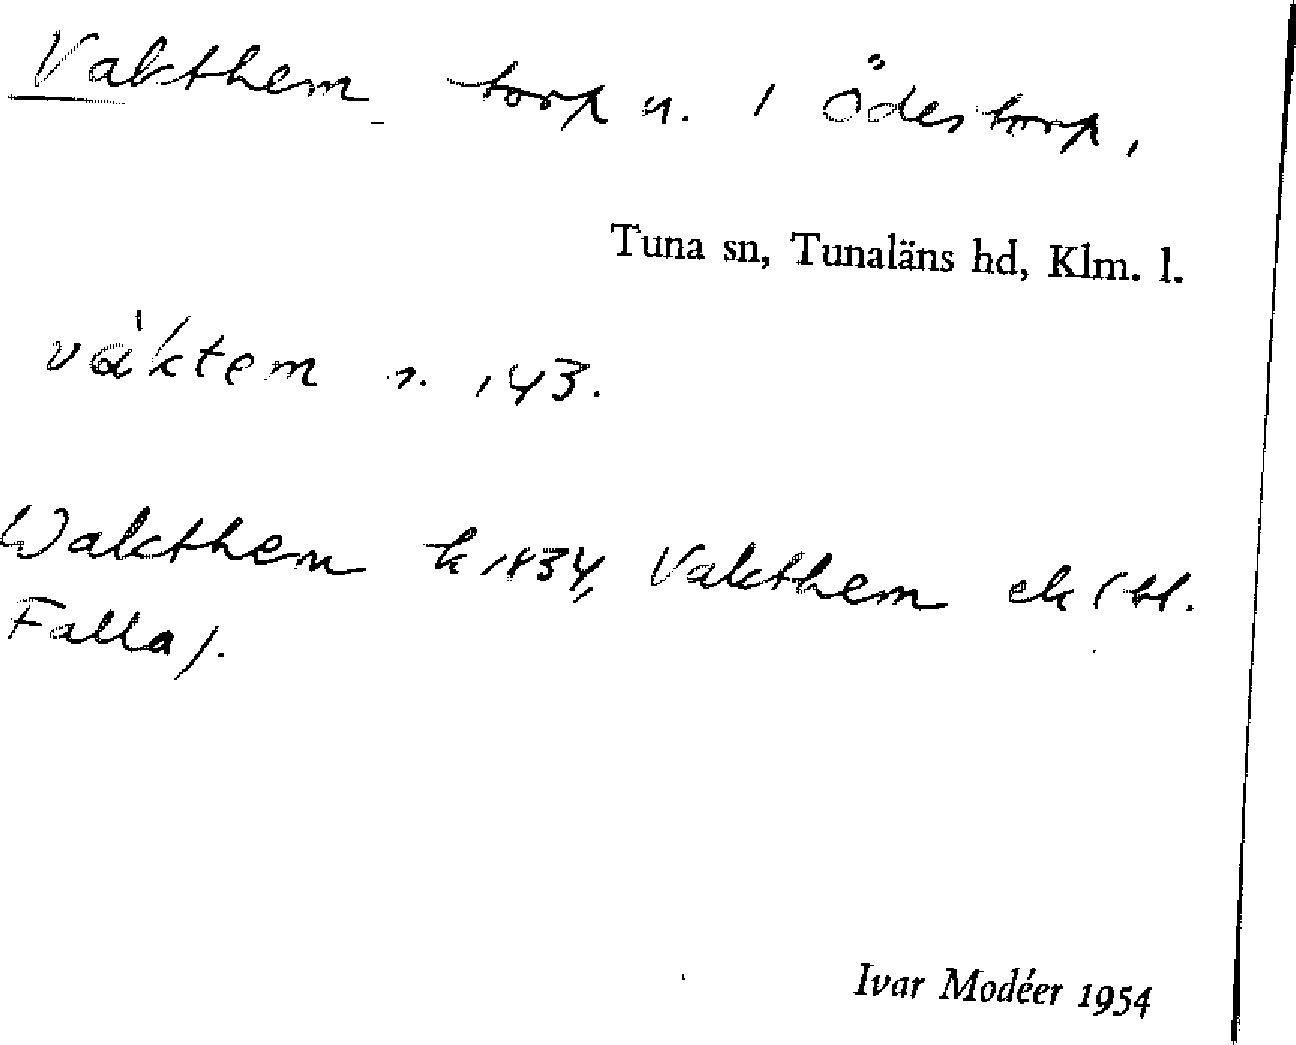 Vakthem torp u. 1 Ödestorp,
Tuna sn, Tunaläns hd, Klm. l.
väktem s. 143.
Wakthem k 1834, Vakthem ek (bl.
Falla).
Ivar Modéer 1954